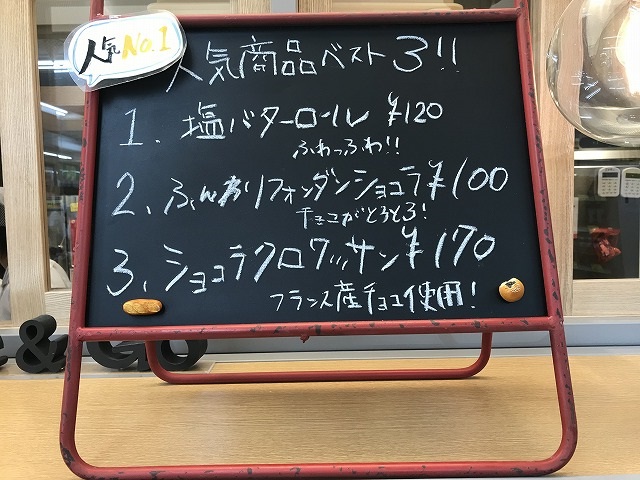 人気No.1
人気商品ベスト3!!
1. 塩バターロール ¥120
ふわっふわ!!
2. ふんわりフォンダンショコラ¥100
チョコがとろとろ!
3. ショコラクロワッサン¥170
フランス産チョコ使用!
& Go